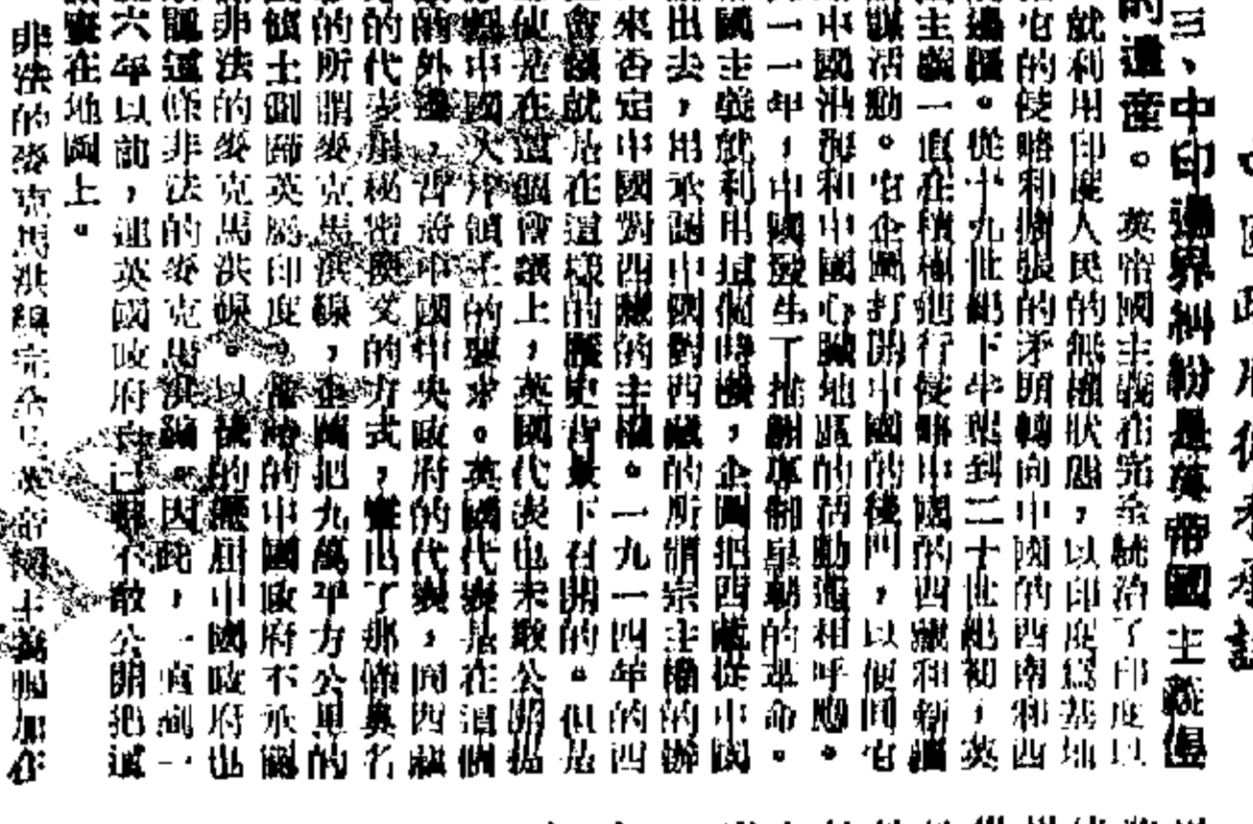 國政府從未承認
三、中印邊界糾紛是英帝國主義
的遺產。英帝國主義在完全統治了印度以
就利用印度人民的無權狀態,以印度爲基地
它的侵略和擴張的矛頭轉向中國的西南和西
邊疆。從十九世紀下半葉到二十世紀初,英
主義一直在積極進行侵略中國的西藏和新疆
謀活動。它企圖打開中國的後門,以便同它
中國沿海和中國心臟地區的活動遙相呼應。
一一年,中國發生了推翻專制皇朝的革命。
國主義就利用這個時機,企圖把西藏從中國
出去,用承認中國對西藏的所謂宗主權的辦
來否定中國對西藏的主權。一九一四年的西
會議就是在這樣的歷史背景下召開的。但是
使是在這個會議上,英國代表也未敢公開提
中國大片領土的要求。英國代表是在這個
的外邊,背着中國中央政府的代表,同西藏
的代表用秘密換文的方式,畫出了那條臭名
的所謂麥克馬洪線,企圖把九萬平方公里的
領土劃歸英屬印度。當時的中國政府不承認
非法的麥克馬洪線。以後的歷屆中國政府也
認這條非法的麥克馬洪線。因此,一直到一
六年以前,連英國政府自己都不敢公開把這
畫在地圖上。
非法的麥克馬洪線完全是英帝國主義強加在